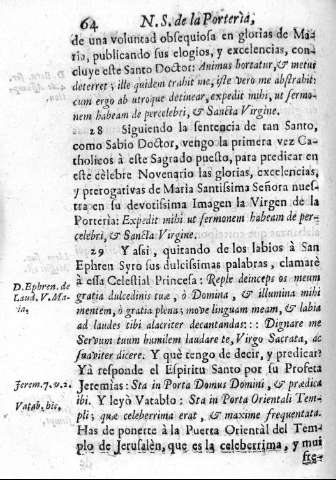 64 N. S. de la Porterìa,
de una voluntad obsequiosa en glorias de Ma-
rìa, publicando sus elogios, y excelencias, con-
cluye este Santo Doctor: Animus hortatur, & metui
deterret; ille quidem trahit me, iste verò me abstrahit:
cum ergo ab utroque detinear, expedit mihi, ut sermo-
nem habeam de percelebri, & Sancta Virgine.
28 Siguiendo la sentencia de tan Santo,
como Sabio Doctor, vengo la primera vez Ca-
tholicos à este Sagrado puesto, para predicar en
este cèlebre Novenario las glorias, excelencias,
y prerogativas de Maria Santissima Señora nues-
tra en su devotissima Imagen la Virgen de la
Porterìa: Expedit mihi ut sermonem habeam de per-
celebri, & Sancta Virgine.
29 Y assi, quitando de los labios à San
Ephren Syro sus dulcissimas palabras, clamarè
à essa Celestial Princesa: Reple deinceps os meum
D. Ephren. de
gratia dulcedinis tuæ, ò Domina, & illumina mihi
Laud. V. Ma-
mentem, ò gratia plena; move linguam meam, & labia
ria,
ad laudes tibi alacriter decantandas::: Dignare me
Servum tuum humilem laudare te, Virgo Sacrata, ac
suaviter dicere. Y què tengo de decir, y predicar?
Yà responde el Espiritu Santo por su Profeta
Jerem. 7. v. 2.
Jeremìas: Sta in Porta Domus Domini, & prædica
ibi. Y leyò Vatablo: Sta in Porta Orientali Tem-
Vatab. hic,
pli; que celeberrima erat, & maxime frequentata.
Has de ponerte à la Puerta Orientàl del Tem-
plo de Jerusalèn, que es la celeberrima, y mui
fre-